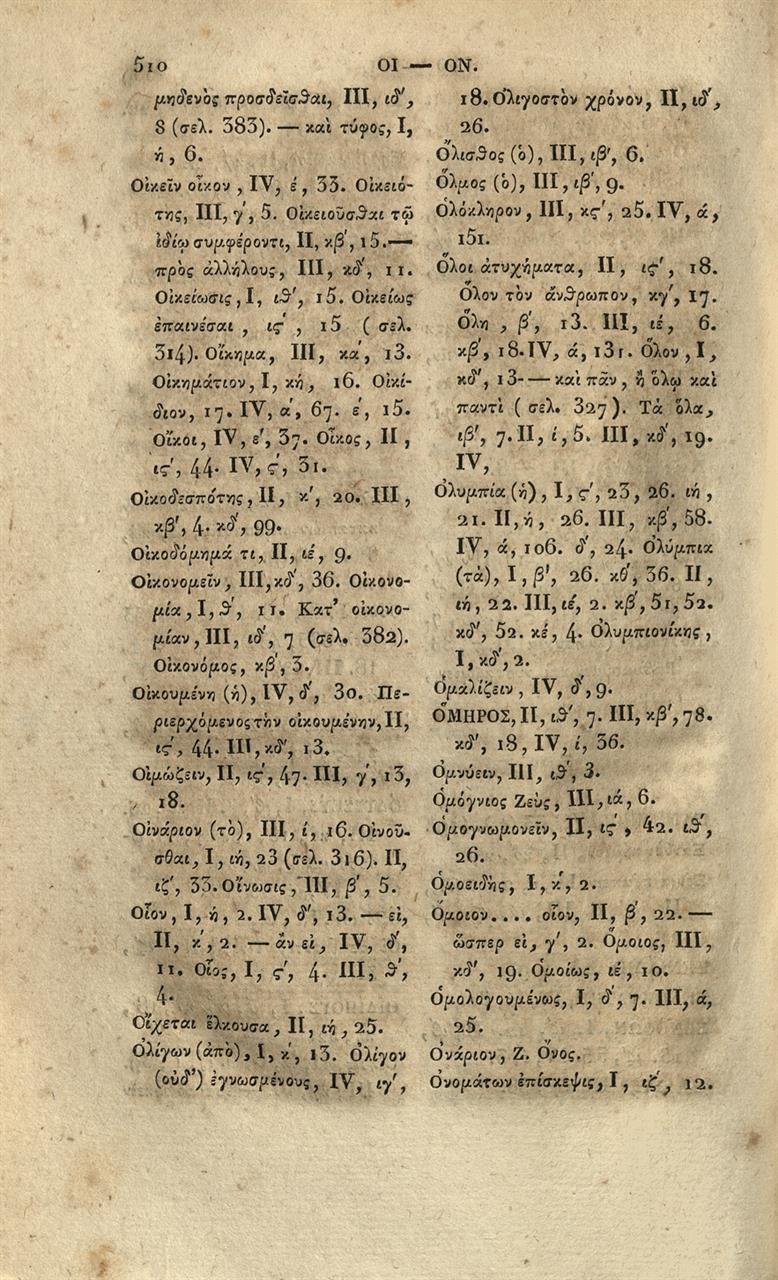 510 ΟΙ — ΟΝ.
μηδενὸς προσδεῖσθαι, III, ιδ´,
8 (σελ. 383). — καὶ τύφος, I,
ή, 6.
Οἰκεῖν οἶκον, IV, έ, 33. Οἰκειό-
της, III, γ´, 5. Οἰκειοῦσθαι τῷ
ἰδίῳ συμφέροντι, II, κβ´, 15.—
πρὸς ἀλλήλους, III, κδ´, 11.
Οἰκείωσις, I, ιθ´, 15. Οἰκείως
ἐπαινέσαι, ις´, 15 (σελ.
314). Οἴκημα, III, κα´, 13.
Οἰκημάτιον, I, κή, 16. Οἰκί-
διον, 17. IV, α´, 67. ε´, 15.
Οἴκοι, IV, ε´, 37. Οἶκος, II,
ις´, 44. IV, ς´, 31.
Οἰκοδεσπότης, II, κ´, 20. III,
κβ´, 4. κδ´, 99.
Οἰκοδόμημά τι, II, ιέ, 9.
Οἰκονομεῖν, III, κδ´, 36. Οἰκονο-
μία, I, θ´, 11. Κατ’ οἰκονο-
μίαν, III, ιδ´, 7 (σελ. 382).
Οἰκονόμος, κβ´, 3.
Οἰκουμένη (ἡ), IV, δ´, 30. Πε-
ριερχόμενος τὴν οἰκουμένην, II,
ις´, 44. III, κδ´, 13.
Οἰμώζειν, II, ις´, 47. III, γ´, 13,
18.
Οἰνάριον (τὸ), III, ί, 16. Οἰνοῦ-
σθαι, I, ιή, 23 (σελ. 316). II,
ιζ´, 33. Οἴνωσις, III, β´, 5.
Οἷον, I, ή, 2. IV, δ´, 13. — εἰ,
II, κ´, 2. — ἂν εἰ, IV, δ´,
11. Οἷος, I, ς´, 4. III, θ´,
4.
Οἴχεται ἕλκουσα, II, ιή, 25.
Ὀλίγων (ἀπὸ), I, κ´, 13. Ὀλίγον
(οὐδ’) ἐγνωσμένους, IV, ιγ´,
18. Ὀλιγοστὸν χρόνον, II, ιδ´,
26.
Ὄλισθος (ὁ), III, ιβ´, 6.
Ὅλμος (ὁ), III, ιβ´, 9.
Ὁλόκληρον, III, κς´, 25. IV, ά,
151.
Ὅλοι ἀτυχήματα, II, ις´, 18.
Ὅλον τὸν ἄνθρωπον, κγ´, 17.
Ὅλη, β´, 13. III, ιέ, 6.
κβ´, 18. IV, ά, 131. Ὅλον, I,
κδ´, 13-— καὶ πᾶν, ἢ ὅλῳ καὶ
παντὶ (σελ. 327). Τὰ ὅλα,
ιβ´, 7. II, ί, 5. III, κδ´, 19.
IV,
Ὀλυμπία (ἡ), I, ς´, 23, 26. ιή,
21. II, ή, 26. III, κβ´, 58.
IV, ά, 106. δ´, 24. Ὀλύμπια
(τὰ), I, β´, 26. κθ´, 36. II,
ιή, 22. III, ιέ, 2. κβ´, 51, 52.
κδ´, 52. κέ, 4. Ὀλυμπιονίκης,
I, κδ´, 2.
Ὁμαλίζειν, IV, δ´, 9.
ὍΜΗΡΟΣ, II, ιθ´, 7. III, κβ´, 78.
κδ´, 18, IV, ί, 36.
Ὀμνύειν, III, ιθ´, 3.
Ὁμόγνιος Ζεὺς, III, ιά, 6.
Ὁμογνωμονεῖν, II, ις´, 42. ιθ´,
26.
Ὁμοειδὴς, I, κ´, 2.
Ὅμοιον.... οἷον, II, β´, 22. —
ὥσπερ εἰ, γ´, 2. Ὅμοιος, III,
κδ´, 19. Ὁμοίως, ιέ, 10.
Ὁμολογουμένως, I, δ´, 7. III, ά,
25.
Ὀνάριον, Ζ. Ὄνος.
Ὀνομάτων ἐπίσκεψις, I, ιζ´, 12.